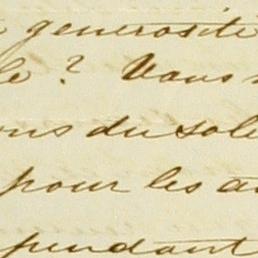 generosité
le ? Vous
ons du sole
pour les a
pendant